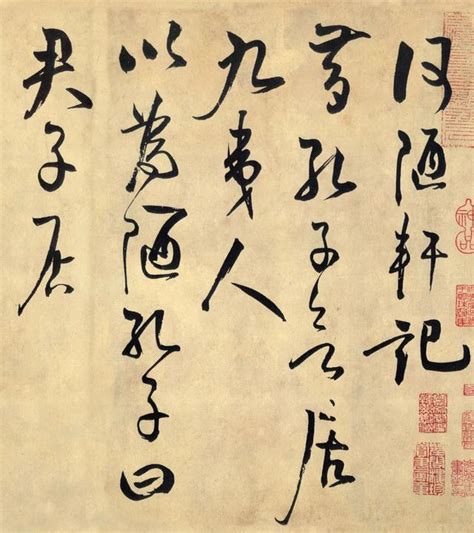 何陋軒記
昔孔子欲居
九夷人
以為陋孔子曰
君子居